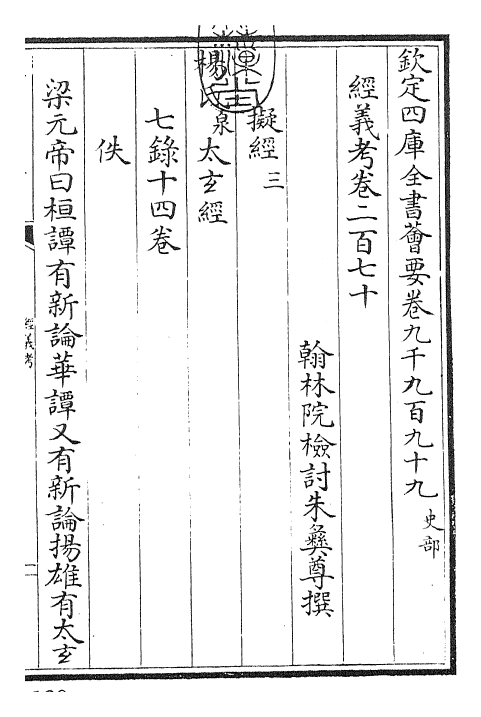 欽定四庫全書薈要卷九千九百九十九 史部
經義考卷二百七十
翰林院檢討朱彝尊撰
擬經三
楊氏泉太玄經
七錄十四卷
佚
梁元帝曰桓譚有新論華譚又有新論揚雄有太玄
經義考